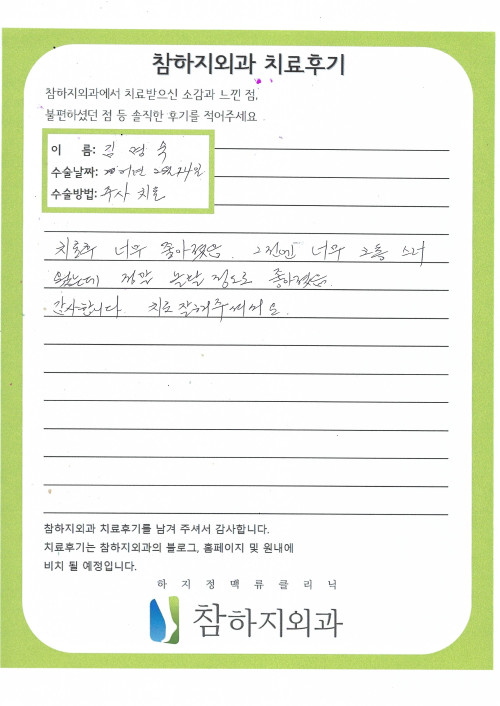 참하지외과 치료후기
참하지외과에서 치료받으신 소감과 느낀 점,
불편하셨던 점 등 솔직한 후기를 적어주세요
이 름: 김 명 숙
수술날짜: 2월 24일
수술방법: 주사 치료
치료후 너무 좋아졌음. 그전엔 너무 고통 스러
웠는데 정말 놀랄 정도로 좋아졌음.
감사합니다. 치료 잘해주셔서요.
참하지외과 치료후기를 남겨 주셔서 감사합니다.
치료후기는 참하지외과의 블로그, 홈페이지 및 원내에
비치 될 예정입니다.
하지정맥류클리닉
참하지외과